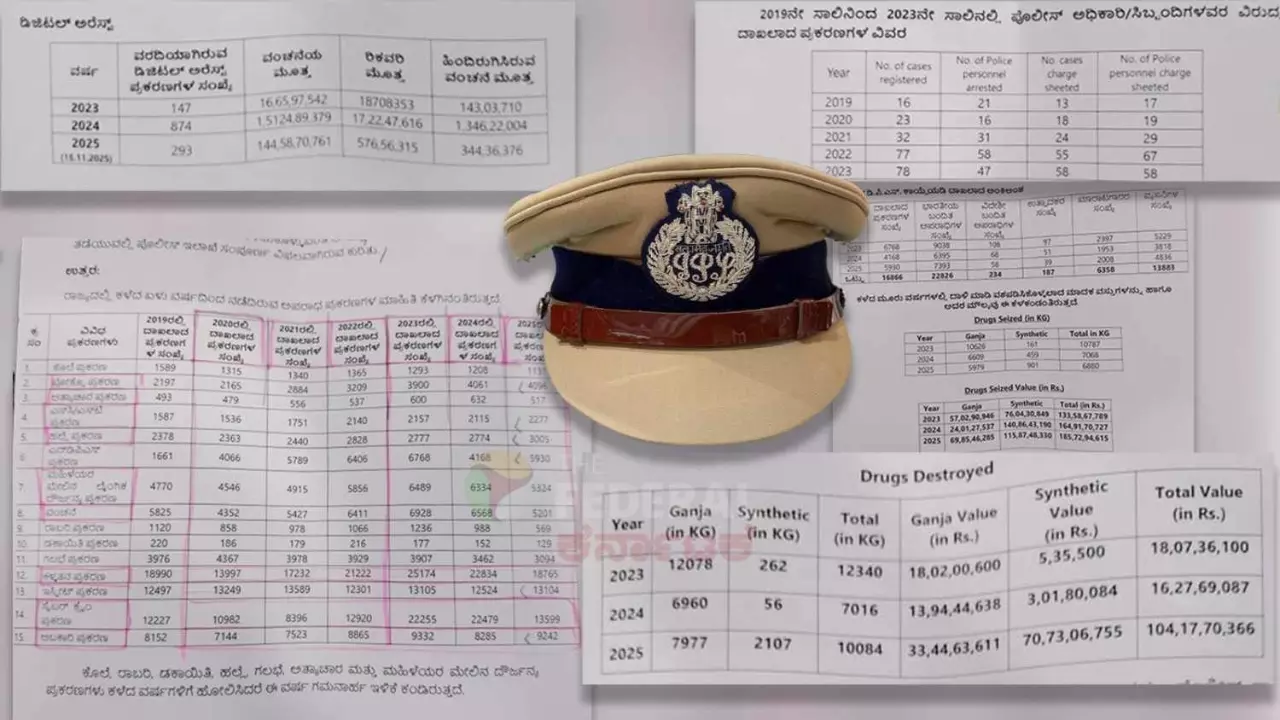 ಡಿಜಿಟಲ್ ಅರೆಸ್ಟ್
ವರ್ಷ ವರದಿಯಾಗಿರುವ ಡಿಜಿಟಲ್ ಅರೆಸ್ಟ್ ಪ್ರಕರಣಗಳ ಸಂಖ್ಯೆ ವಂಚನೆಯ ಮೊತ್ತ ರಿಕವರಿ ಮೊತ್ತ ಹಿಂದಿರುಗಿಸಿರುವ ವಂಚನೆ ಮೊತ್ತ
2023 147 16,65,97,542 18708353 143,03,710
2024 874 1,5124,89,379 17,22,47,616 1,346,22,004
2025 293 144,58,70,761 576,56,315 344,36,376
(15.11.2025)
2019ನೇ ಸಾಲಿನಿಂದ 2023ನೇ ಸಾಲಿನಲ್ಲಿ ಪೊಲೀಸ್ ಅಧಿಕಾರಿ/ಸಿಬ್ಬಂದಿಗಳವರ ವಿರುದ
ದಾಖಲಾದ ಪ್ರಕರಣಗಳ ವಿವರ
Year No. of cases registered No. of Police personnel arrested No. cases charge sheeted No. of Police personnel charge sheeted
2019 16 21 13 17
2020 23 16 18 19
2021 32 31 24 29
2022 77 58 55 67
2023 78 47 58 58
ದಾಖಲಾದ ಪ್ರಕರಣಗಳ ಸಂಖ್ಯೆ ಭಾರತೀಯ ಬಂಧಿತ ಆಪರಾಧಿಗಳ ಸಂಖ್ಯೆ ವಿದೇಶೀ ಬಂಧಿತ ಆಪರಾಧಿಗಳ ಸಂಖ್ಯೆ
2023 6768 9038 108 97 2397 5229
2024 4168 6395 68 51 1953 3818
2025 5930 7393 58 39 2008 4836
ಒಟ್ಟು 16866 22826 234 187 6358 13883
ಕಳೆದ ಮೂರು ವರ್ಷಗಳಲ್ಲಿ ದಾಳಿ ಮಾಡಿ ವಶಪಡಿಸಿಕೊಳ್ಳಲಾದ ಮಾದಕ ವಸ್ತುಗಳನ್ನು ಹಾಗೂ
ಅದರ ಮೌಲ್ಯವು ಈ ಕೆಳಕಂಡಂತಿರುತ್ತದೆ
Drugs Seized (in KG)
Year Ganja Synthetic Total in KG
2023 10626 161 10787
2024 6609 459 7068
2025 5979 901 6880
Drugs Seized Value (in Rs.)
Year Ganja Synthetic Total (in Rs.)
2023 57,02,90,946 76,04,30,849 133,58,67,789
2024 24,01,27,537 140,86,43,190 164,91,70,727
2025 69,85,46,285 115,87,48,330 185,72,94,615
ತಡೆಯುವಲ್ಲಿ ಪೊಲೀಸ್ ಇಲಾಖೆ ಸಂಪೂರ್ಣ ವಿಫಲವಾಗಿರುವ ಕುರಿತು
ಉತ್ತರ:
ರಾಜ್ಯದಲ್ಲಿ ಕಳೆದ ಏಳು ವರ್ಷದಿಂದ ನಡೆದಿರುವ ಅಪರಾಧ ಪ್ರಕರಣಗಳ ಮಾಹಿತಿ ಕೆಳಗಿನಂತಿರುತ್ತದೆ.
ಕ್ರ ಸಂ ವಿವಿಧ ಪ್ರಕರಣಗಳು 2019ರಲ್ಲಿ ದಾಖಲಾದ ಪ್ರಕರಣಗಳ ಸಂಖ್ಯೆ 2020ರಲ್ಲಿ ದಾಖಲಾದ ಪ್ರಕರಣಗಳ ಸಂಖ್ಯೆ 2021ರಲ್ಲಿ ದಾಖಲಾದ ಪ್ರಕರಣಗಳ ಸಂಖ್ಯೆ 2022ರಲ್ಲಿ ದಾಖಲಾದ ಪ್ರಕರಣಗಳ ಸಂಖ್ಯೆ 2023ರಲ್ಲಿ ದಾಖಲಾದ ಪ್ರಕರಣಗಳ ಸಂಖ್ಯೆ 2024ರಲ್ಲಿ ದಾಖಲಾದ ಪ್ರಕರಣಗಳ ಸಂಖ್ಯೆ
1. ಕೊಲೆ ಪ್ರಕರಣ 1589 1315 1340 1365 1293 1208
2. ಪೋಕ್ಸೋ ಪ್ರಕರಣ 2197 2165 2884 3209 3900 4061 4096
3. ಅತ್ಯಾಚಾರ ಪ್ರಕರಣ 493 479 556 537 600 632 517
4. ಪ್ರಕರಣ 1587 1536 1751 2140 2157 2115 2277
5. ಹಲ್ಲೆ ಪ್ರಕರಣ 2378 2363 2440 2828 2777 2774 3005
6. ಎನ್‌ಡಿಪಿಎಸ್ ಪ್ರಕರಣ 1661 4066 5789 6406 6768 4168 5930
7. ಮಹಿಳೆಯರ ಮೇಲಿನ ಲೈಂಗಿಕ ದೌರ್ಜನ್ಯ ಪ್ರಕರಣ 4770 4546 4915 5856 6489 6334 5324
8. ವಂಚನೆ 5825 4352 5427 6411 6928 6568 5201
9. ರಾಬರಿ ಪ್ರಕರಣ 1120 858 978 1066 1236 988 569
10. ಡಕಾಯಿತಿ ಪ್ರಕರಣ 220 186 179 216 177 152 129
11. ಗಲಭೆ ಪ್ರಕರಣ 3976 4367 3978 3929 3907 3462 3094
12. ಕಳ್ಳತನ ಪ್ರಕರಣ 18990 13997 17232 21222 25174 22834 18765
13. ಇಸ್ಪೀಟ್ ಪ್ರಕರಣ 12497 13249 13589 12301 13105 12524 13104
14. ಸೈಬರ್ ಕ್ರೈಂ ಪ್ರಕರಣ 12227 10982 8396 12920 22255 22479 13599
15. ಅಬಕಾರಿ ಪ್ರಕರಣ 8152 7144 7523 8865 9332 8285 9242
ಕೊಲೆ, ರಾಬರಿ, ಡಕಾಯಿತಿ, ಹಲ್ಲೆ, ಗಲಭೆ, ಅತ್ಯಾಚಾರ ಮತ್ತು ಮಹಿಳೆಯರ ಮೇಲಿನ ದೌರ್ಜನ್ಯ
ಪ್ರಕರಣಗಳು ಕಳೆದ ವರ್ಷಗಳಿಗೆ ಹೋಲಿಸಿದರೆ ಈ ವರ್ಷ ಗಮನಾರ್ಹ ಇಳಿಕೆ ಕಂಡಿರುತ್ತದೆ.
THE FEDERAL
ಕರ್ನಾಟಕ
Drugs Destroyed
Year Ganja (in KG) Synthetic (in KG) Total (in KG) Ganja Value (in Rs.) Synthetic Value (in Rs.) Total Value (in Rs.)
2023 12078 262 12340 18,02,00,600 5,35,500 18,07,36,100
2024 6960 56 7016 13,94,44,638 3,01,80,084 16,27,69,087
2025 7977 2107 10084 33,44,63,611 70,73,06,755 104,17,70,366